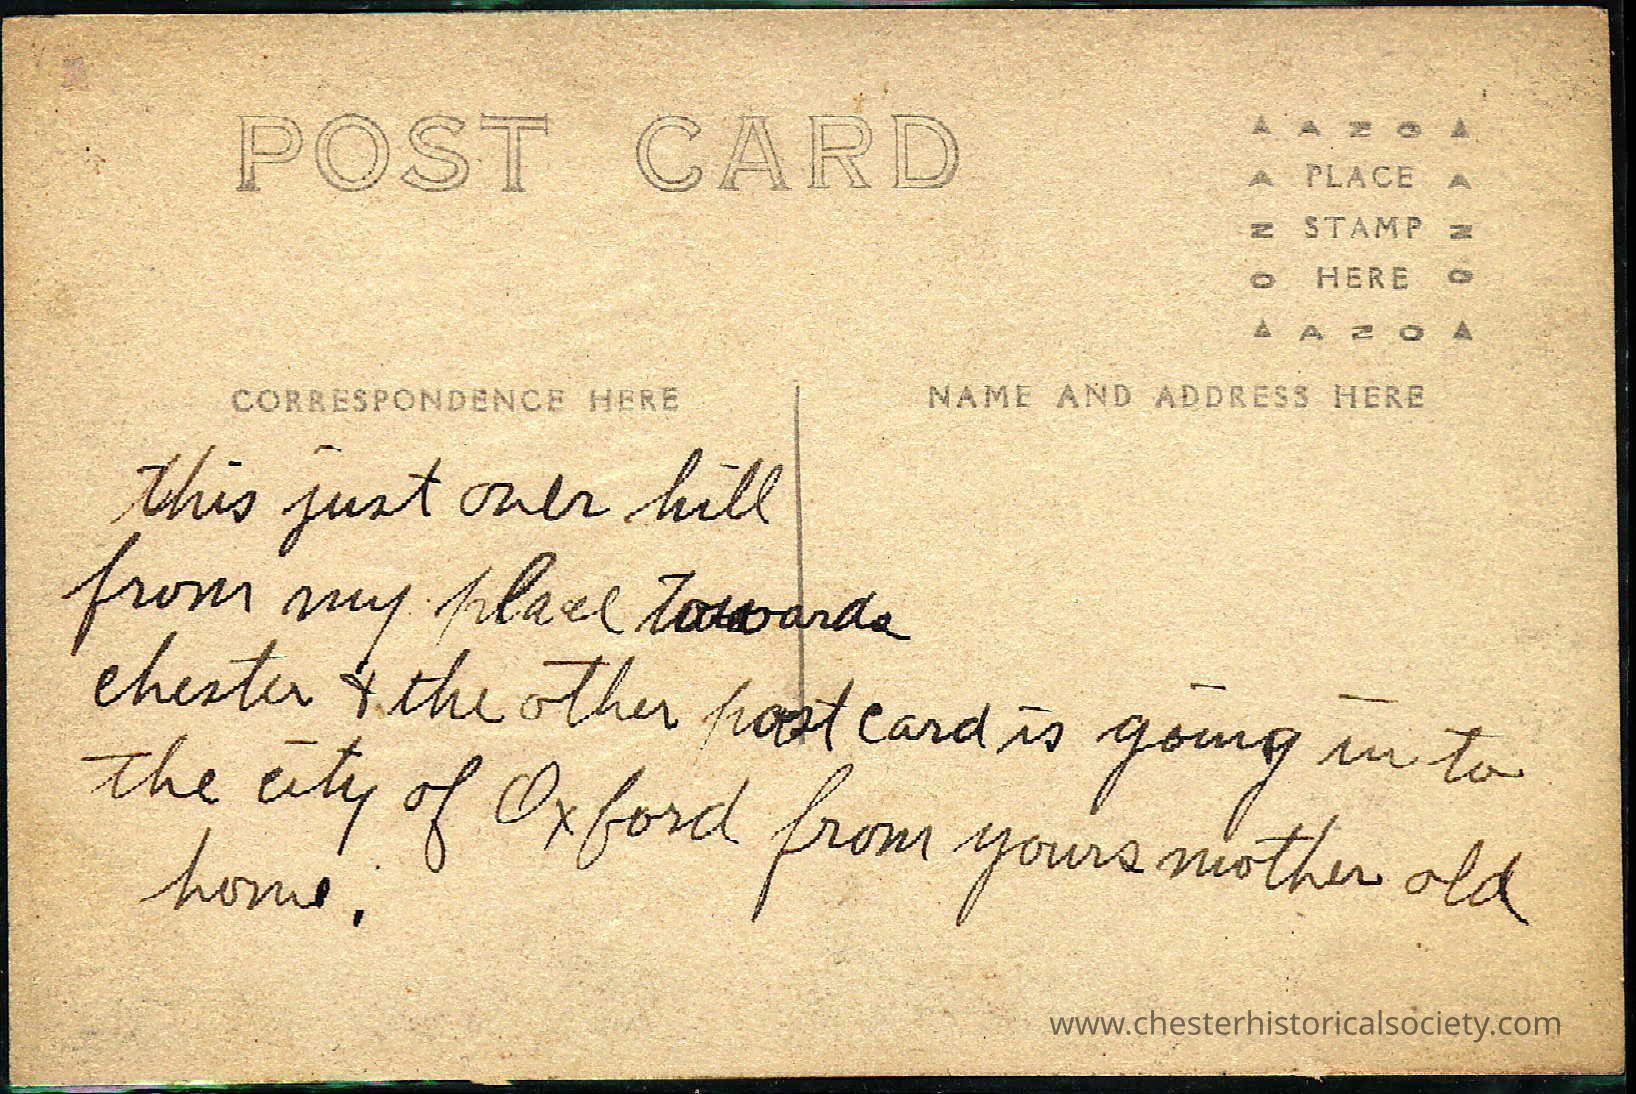 POST CARD
AZO
PLACE
STAMP
HERE
AZO
CORRESPONDENCE HERE
NAME AND ADDRESS HERE
this just over hill
from my place towards
chester & the other post card is going in to
the city of Oxford from yours mother old
home.
www.chesterhistoricalsociety.com